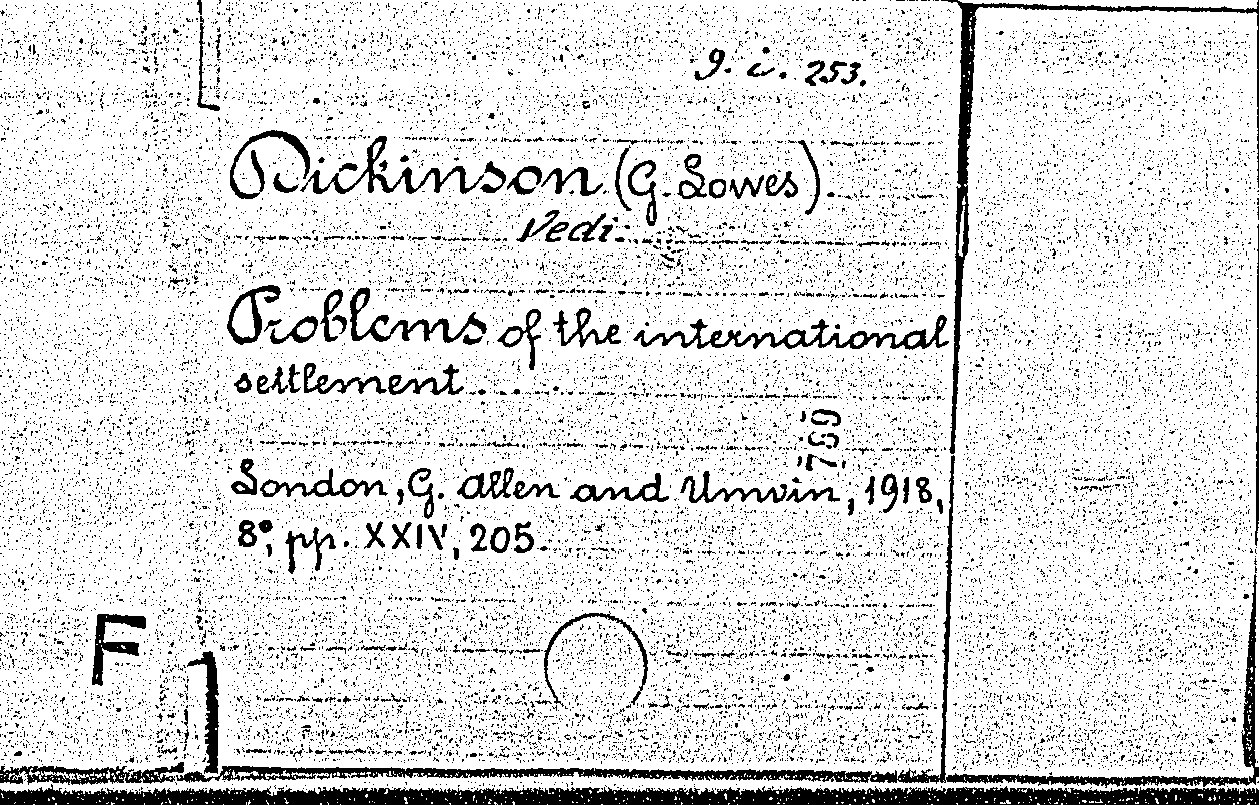 9. i. 253.
Dickinson (G. Lowes).
Vedi:
Problems of the international
settlement . . . .
769
London, G. Allen and Unwin, 1918,
8°, pp. XXIV, 205.
F